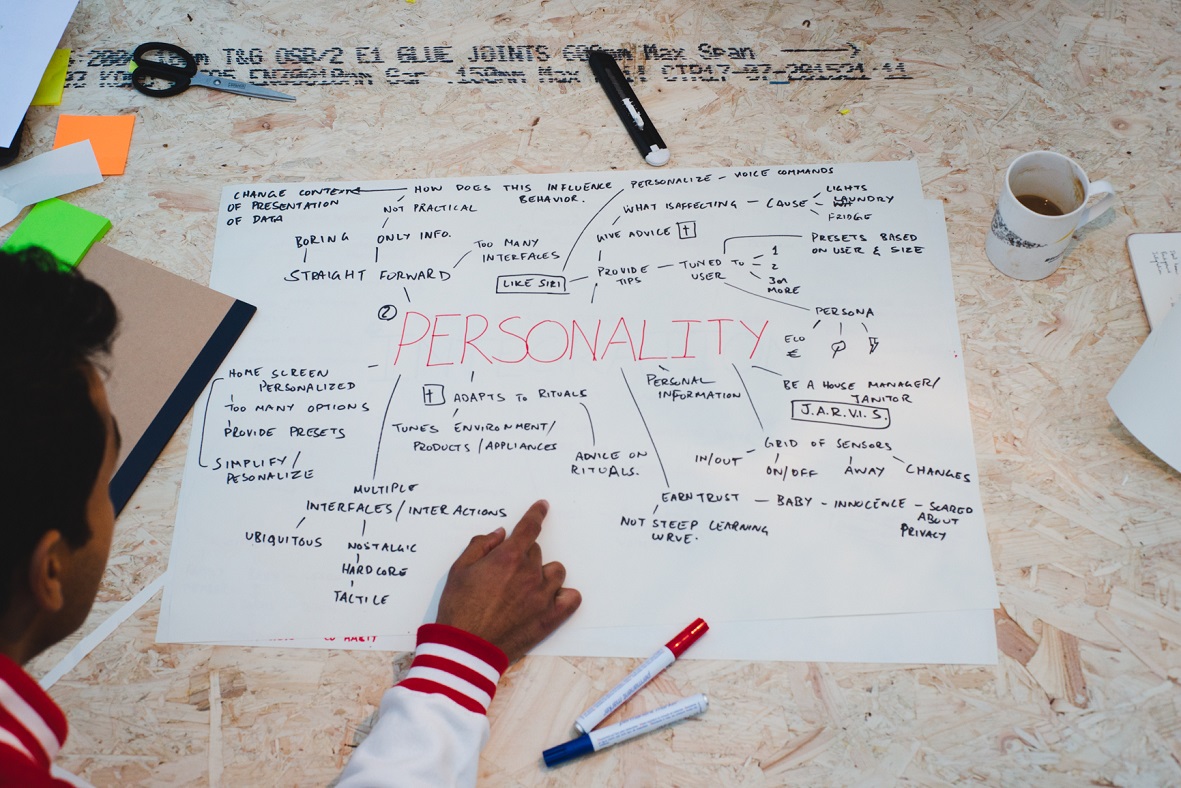 T&G OSB/2 E1 GLUE JOINTS Max Span
CHANGE CONTEXT
OF PRESENTATION
OF DATA
HOW DOES THIS INFLUENCE
BEHAVIOR.
PERSONALIZE - VOICE COMMANDS
NOT PRACTICAL
BORING
ONLY INFO.
TOO MANY
INTERFACES
STRAIGHT FORWARD
WHAT IS AFFECTING - CAUSE
LIGHTS
LAUNDRY
FRIDGE
GIVE ADVICE
LIKE SIRI
PROVIDE
TIPS
TUNED TO
USER
1
2
MORE
PRESETS BASED
ON USER & SIZE
PERSONA
ECO
€
2
PERSONALITY
HOME SCREEN
PERSONALIZED
TOO MANY OPTIONS
PROVIDE PRESETS
SIMPLIFY/
PESONALIZE
ADAPTS TO RITUALS
TUNES ENVIRONMENT/
PRODUCTS / APPLIANCES
ADVICE ON
RITUALS.
PERSONAL
INFORMATION
BE A HOUSE MANAGER/
JANITOR
J.A.R.V.I.S.
GRID OF SENSORS
IN/OUT
ON/OFF
AWAY
CHANGES
MULTIPLE
INTERFACES / INTERACTIONS
UBIQUITOUS
NOSTALGIC
HARDCORE
TACTILE
EARN TRUST - BABY - INNOCENCE - SCARED
ABOUT
PRIVACY
NOT STEEP LEARNING
CURVE.